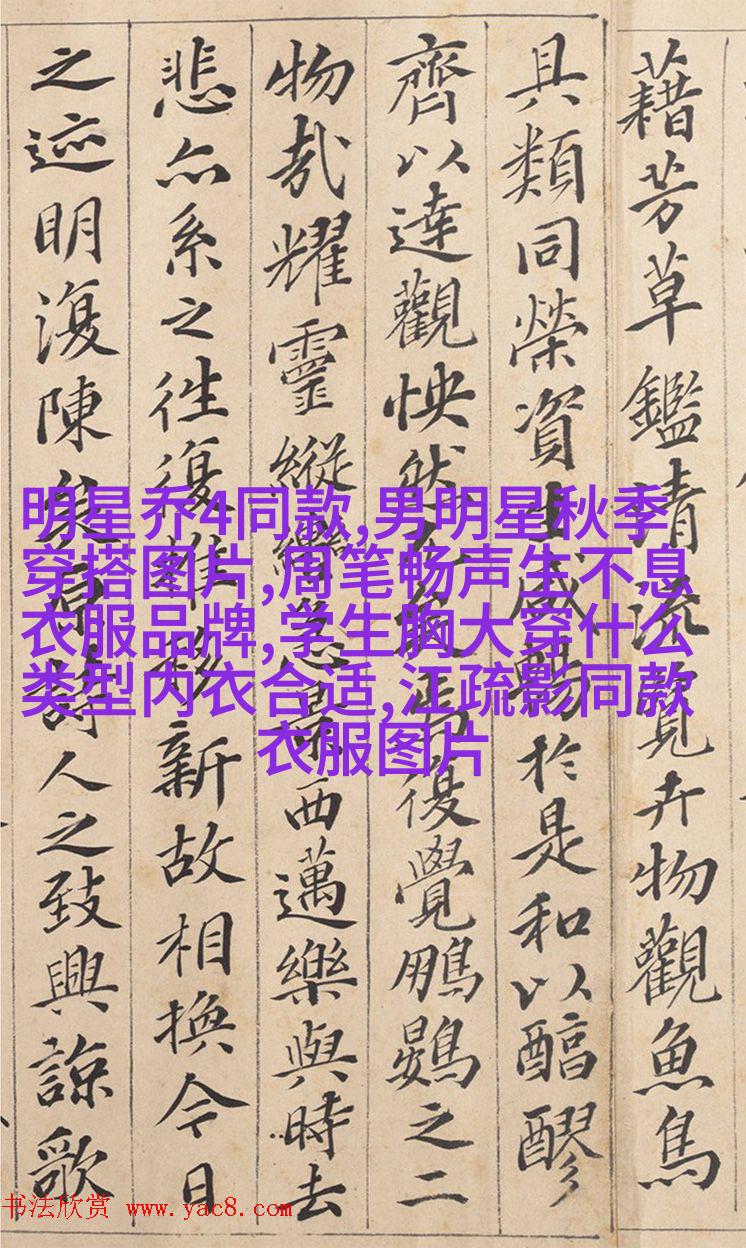 藉芳草鑑清流覽卉物觀魚鳥
具類同榮資生咸暢於是和以醇醪
齊以達觀怏然焉復覺鵬鷃之二
物哉耀靈縱轡急景西邁樂與時去
悲亦系之往復推移新故相換今日
之迹明復陳矣原詩人之致興諒歌
明星乔4同款,男明星秋季
穿搭图片,周笔畅声生不息
衣服品牌,学生胸大穿什么
类型内衣合适,江疏影同款
衣服图片
书法欣赏 www.yac8.com